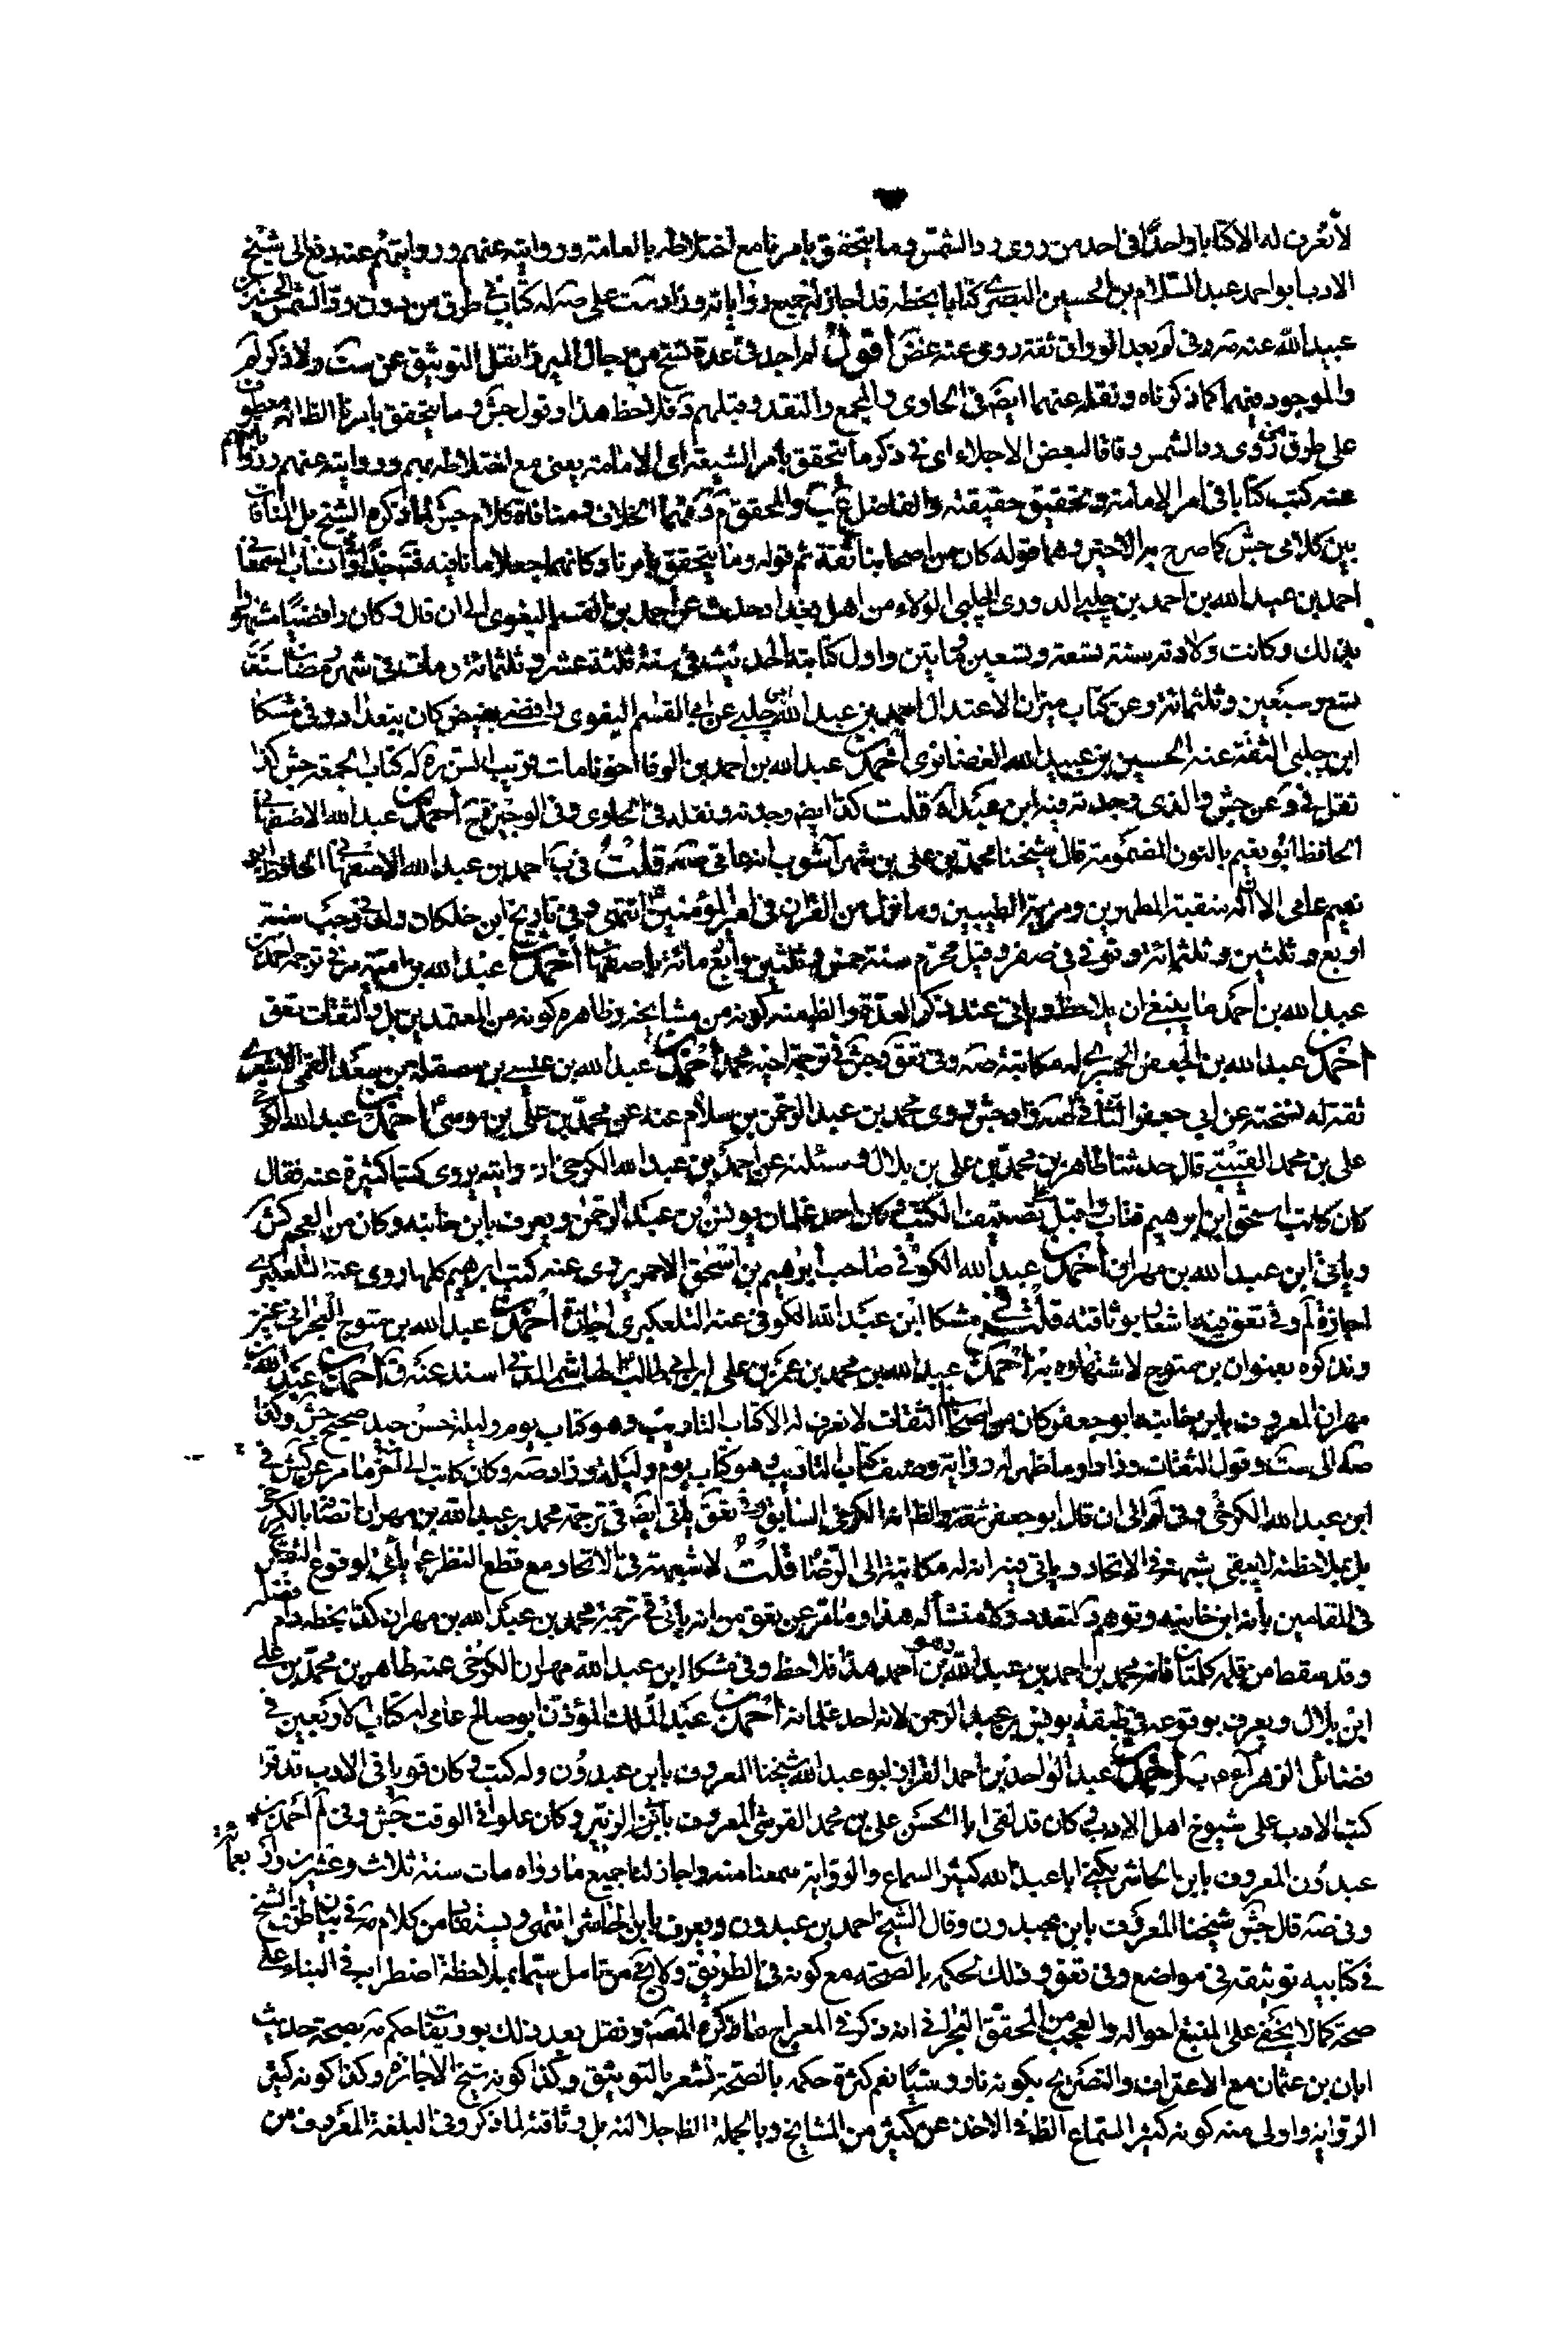 لا نعرف له الا كتابا واحدا في احد من روى رد الشمس وما يتحقق بامرنا مع اختلاطه بالعامة وروايته عنهم وروايتهم عنه دفع الى شيخ
الادب ابو احمد عبد السلام بن الحسين البصري كتابا بخطه قد اجاز له جميع رواياته وزاد ست على صه له كتاب في طرق من روى رد الشمس الحسين بن
عبيد الله عنه صه وفي لم بعد الوراق ثقة روى عنه غض اقول لم اجد في عدة نسخ من رجال الميرزا نقل التوثيق عن ست ولا ذكر لم
والموجود فيهما كما ذكرناه ونقله عنهما ايضا في الحاوي والمجمع والنقد وقبلهم د فلاحظ هذا وقول جش وما يتحقق بامرنا الظ انه معطوف
على طرق من روى رد الشمس وفاقا لبعض الاجلاء اى في ذكر ما يتحقق بأمر الشيعة اى الامامة يعني مع اختلاطه بهم وروايته عنهم وروايتهم
عنه كتب كتابا في امر الامامة وتحقيق حقيقته والفاضل ع ب والمحقق م د فهما الخلاف ومنافاة كلام جش لما ذكره الشيخ بل المنافات
بين كلامي جش كما صرح به الاخير وهما قوله كان من اصحابنا ثقة ثم قوله وما يتحقق بامرنا وكانهما جعلا ما نافية فتعجب جدا وانساب السمعاني
احمد بن عبد الله بن احمد بن جلبي الدوري الجلبي الولاء من اهل بغداد حدث عن احمد بن القسم البغوي الى ان قال وكان رافضيا مشهورا
بذلك وكانت ولادته سنة تسعة وتسعين ومأتين واول كتابته الحديث في سنة ثلثة عشر وثلثمائة ومات في شهر رمضان سنة
تسع وسبعين وثلثمائة وعن كتاب ميزان الاعتدال احمد بن عبد الله بن جلبي عن ابي القاسم البغوي رافضي بغيض كان ببغداد وفي مشكا
ابن جلبي الثقة عنه الحسين بن عبيد الله الغضائري احمد بن عبد الله بن احمد بن الوفا اخونا مات قريب السن ره له كتاب الجمعة جش كذا
نقل في د عن جش والذي وجدته فيه ابن عبد الله قلت كذا ايضا وجدته ونقله في الحاوي وفي الوجيزة ح احمد بن عبد الله الاصفهاني
الحافظ ابو نعيم بالنون المضمومة قال شيخنا محمد بن علي بن شهرآشوب انه عامي صه قلت في ب احمد بن عبد الله الاصفهاني الحافظ ابو
نعيم عامي الا ان له منقبة المطهرين ومرتبة الطيبين وما نزل من القران في امير المؤمنين ع انتهى وفي تاريخ ابن خلكان ولد في رجب سنة
اربع وثلثين وثلثمائة وتوفي في صفر وقيل محرم سنة خمس وثلثين واربع مائة باصفهان احمد بن عبد الله بن امية مر في ترجمة احمد بن
عبد الله بن احمد ما ينبغي ان يلاحظ وياتي عند ذكر العدة والظ منه كونه من مشايخه وظاهره كونه من المعتمدين بل والثقات تعق
احمد بن عبد الله بن جعفر الحميري له مكاتبة صه وفي تعق وجش في ترجمة اخيه محمد احمد بن عبد الله بن عيسى بن مصقلة بن سعد القمي الاشعري
ثقة له نسخة عن ابي جعفر الثاني صه وزاد جش روى محمد بن عبد الرحمن بن سلام عنه عن محمد بن علي بن موسى ع احمد بن عبد الله الكرخي
علي بن محمد القتيبي قال حدثنا طاهر بن محمد بن علي بن بلال وسئلته عن احمد بن عبد الله الكرخي اذ رايته يروى كتبا كثيرة عنه فقال
كان كاتب اسحق ابن ابرهيم فتاب واقبل على تصنيف الكتب وكان احد غلمان يونس بن عبد الرحمن ويعرف بابن خانبه وكان من العجم كش
ويأتي ابن عبد الله بن مهران احمد بن عبد الله الكوفي صاحب ابرهيم بن اسحق الاحمر يروى عنه كتب ابرهيم كلها روى عنه التلعكبري
اجازة لم وفي تعق فيه اشعار بوثاقته قلت في مشكا ابن عبد الله الكوفي عنه التلعكبري اجازة احمد بن عبد الله بن متوج البحراني غير
ونذكره بعنوان بن متوج لاشتهاره به احمد بن عبيد الله بن محمد بن عمر بن علي ابن ابي طالب الهاشمي المدني اسند عنه ق احمد بن عبد الله بن
مهران المعروف بابن خانبه ابو جعفر كان من اصحابنا الثقات لا نعرف له الا كتاب التاديب وهو كتاب يوم وليلة حسن جيد صحيح جش وكذا
صه الى ست وقول الثقات وزاد او ما ظهر له رواية وصنف كتاب التاديب وهو كتاب يوم وليلة وزاد صه وكان كاتب الى اخر ما مر عن كش في
ابن عبد الله الكرخي وفي لم الى ان قال ابو جعفر ثقة والظ انه الكرخي السابق وفي تعق يأتي ايضا في ترجمة محمد بن عبد الله بن مهران ايضا بالكرخي
بل بملاحظته لا يبقى شبهة في الاتحاد وياتي فيه انه له مكاتبة الى الرضا قلت لا شبهة في الاتحاد مع قطع النظر عما يأتي لوقوع التصريح
في المقامين بانه ابن خانبه وتوهم د التعدد ولا منشأ له هذا وما مر عن تعق من انه يأتي في ترجمة محمد بن عبد الله بن مهران كذا بخطه دام فضله
وقد سقط من قلمه كلمتان فانه محمد بن احمد بن عبد الله وهو بن احمد هذا فلاحظ وفي مشكا ابن عبد الله مهران الكرخي عنه طاهر بن محمد بن علي
ابن بلال ويعرف بوقوعه في طبقة يونس بن عبد الرحمن لانه احد غلمانه احمد بن عبد الملك المؤذن ابو صالح عامي له كتاب الاربعين في
فضائل الزهراء ع ب احمد بن عبد الواحد بن احمد البزاز ابو عبد الله شيخنا المعروف بابن عبدون وله كتب وكان قويا في الادب قد قرا
كتب الادب على شيوخ اهل الادب وكان قد لقي ابا الحسن علي بن محمد القرشي المعروف بابن الزبير وكان علوا في الوقت جش وفي لم احمد بن
عبدون المعروف بابن الحاشر يكنى ابا عبد الله كثير السماع والرواية سمعنا منه واجاز لنا جميع ما رواه مات سنة ثلاث وعشرين واربعمائة
وفي صه قال جش شيخنا المعروف بابن عبدون وقال الشيخ احمد بن عبدون ويعرف بابن الحاشر انتهى ويستفاد من كلام صه في بيان طرق الشيخ
في كتابيه توثيقه في مواضع وفي تعق وذلك لحكمه بالصحة مع كونه في الطريق ولا يخ من تامل سيما بملاحظة اضطرابه في البناء على
صحة كما لا يخفى على المتتبع احواله والعجب من المحقق البحراني انه ذكر في المعراج ما ذكره المصنف ونقل بعد ذلك بوريقات حكم مه بصحة حديث
ابان بن عثمان مع الاعتراف والتصريح بكونه ناووسيا نعم كثرة حكمه بالصحة تشعر بالتوثيق وكذا كونه شيخ الاجازه وكذا كونه كثير
الرواية واولى منه كونه كثير السماع الظ في الاخذ عن كثير من المشايخ وبالجملة الظ جلالته بل وثاقته لما ذكر وفي البلغة المعروف من